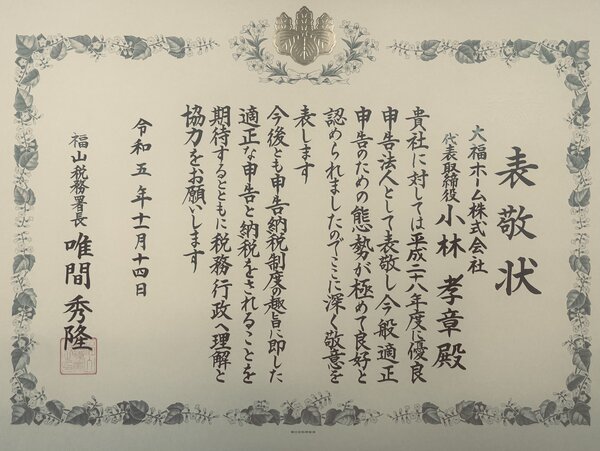 表敬状
大福ホーム株式会社
代表取締役 小林孝章殿
貴社に対しては平成二十八年度に優良
申告法人として表敬し今般適正
申告のための態勢が極めて良好と
認められましたのでここに深く敬意を
表します
今後とも申告納税制度の趣旨に即した
適正な申告と納税をされることを
期待するとともに税務行政へ理解と
協力をお願いします
令和五年十一月十四日
福山税務署長 唯間秀隆